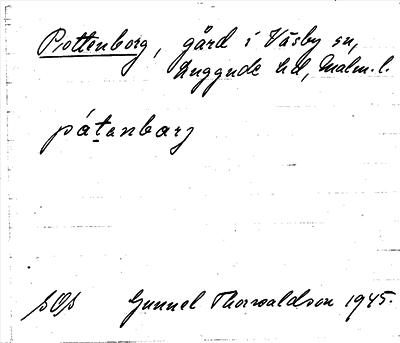 Pottenborg, gård i Väsby sn,
Luggude hd, Malm. l.
påtanbarj
SOS Gunnel Thorvaldson 1945.